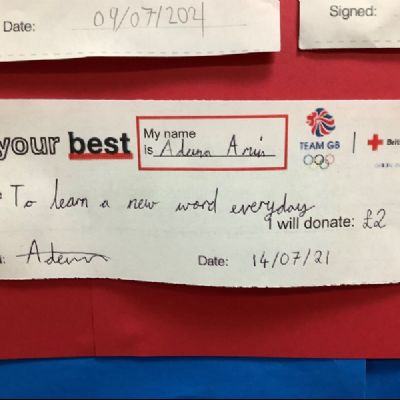 Date: 09/07/2021
Signed:
your best
My name
is
TEAM GB
To learn a new word everyday
I will donate: £2
Date: 14/07/21